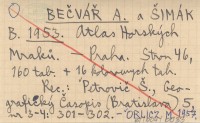 BEČVÁŘ A. a ŠIMÁK
B. 1953. Atlas Horských
Mraků. — Praha. Stron 46,
160 tab. + 16 kolorowych tab.
Rec.: Petrovič Š., Geo-
grafický Časopis (Bratislava) 5,
nr 3-4: 301-302. - ORLICZ M. 1954